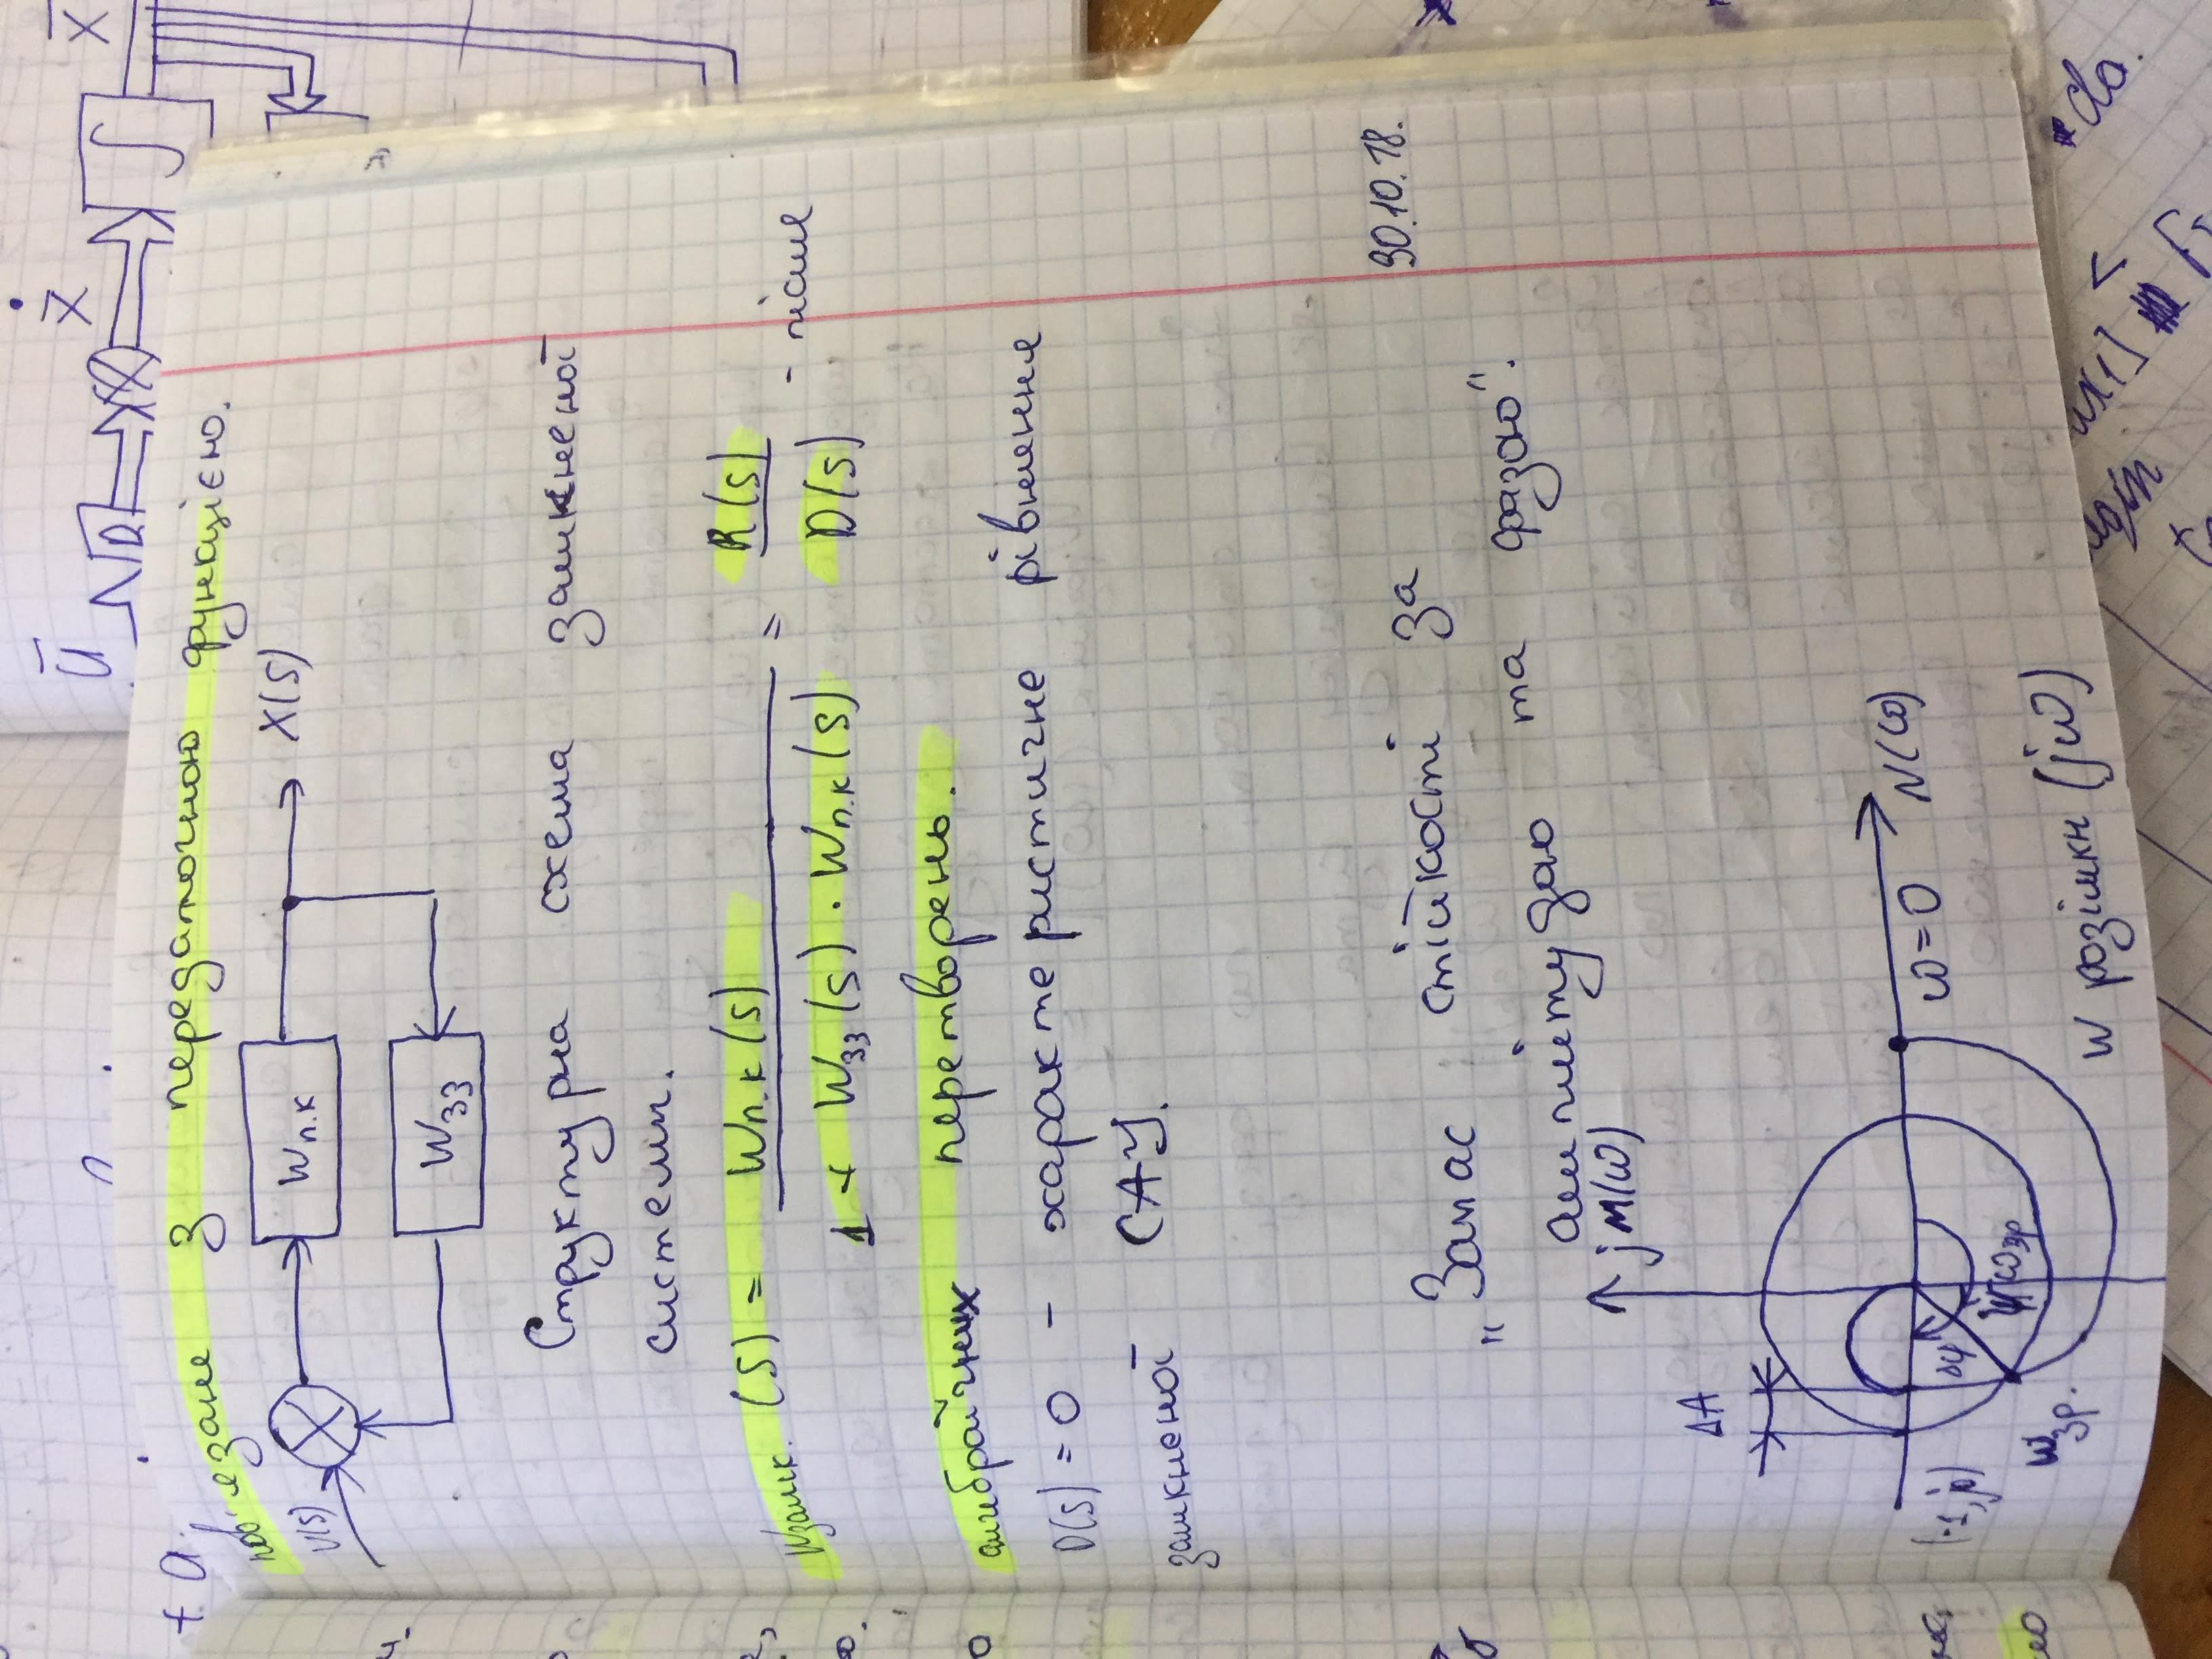 Ū
Ẋ
X̄
∫
+ a
пов'язане з передаточною функцією.
U(s)
Wп.к
X(s)
Wзз
Структурна схема замкненої
системи.
Wзамк. (s) = Wп.к(s) / 1 + Wзз(s) · Wп.к(s) = R(s) / D(s) - після
алгебраїчних перетворень.
D(s) = 0 - характеристичне рівняння
замкненої САУ.
30.10.18.
„Запас стійкості за
амплітудою та фазою".
jM(ω)
ΔA
ω=0
N(ω)
(-1, j0)
Δφ
ωзр
ωзр.
W розімкн (jω)